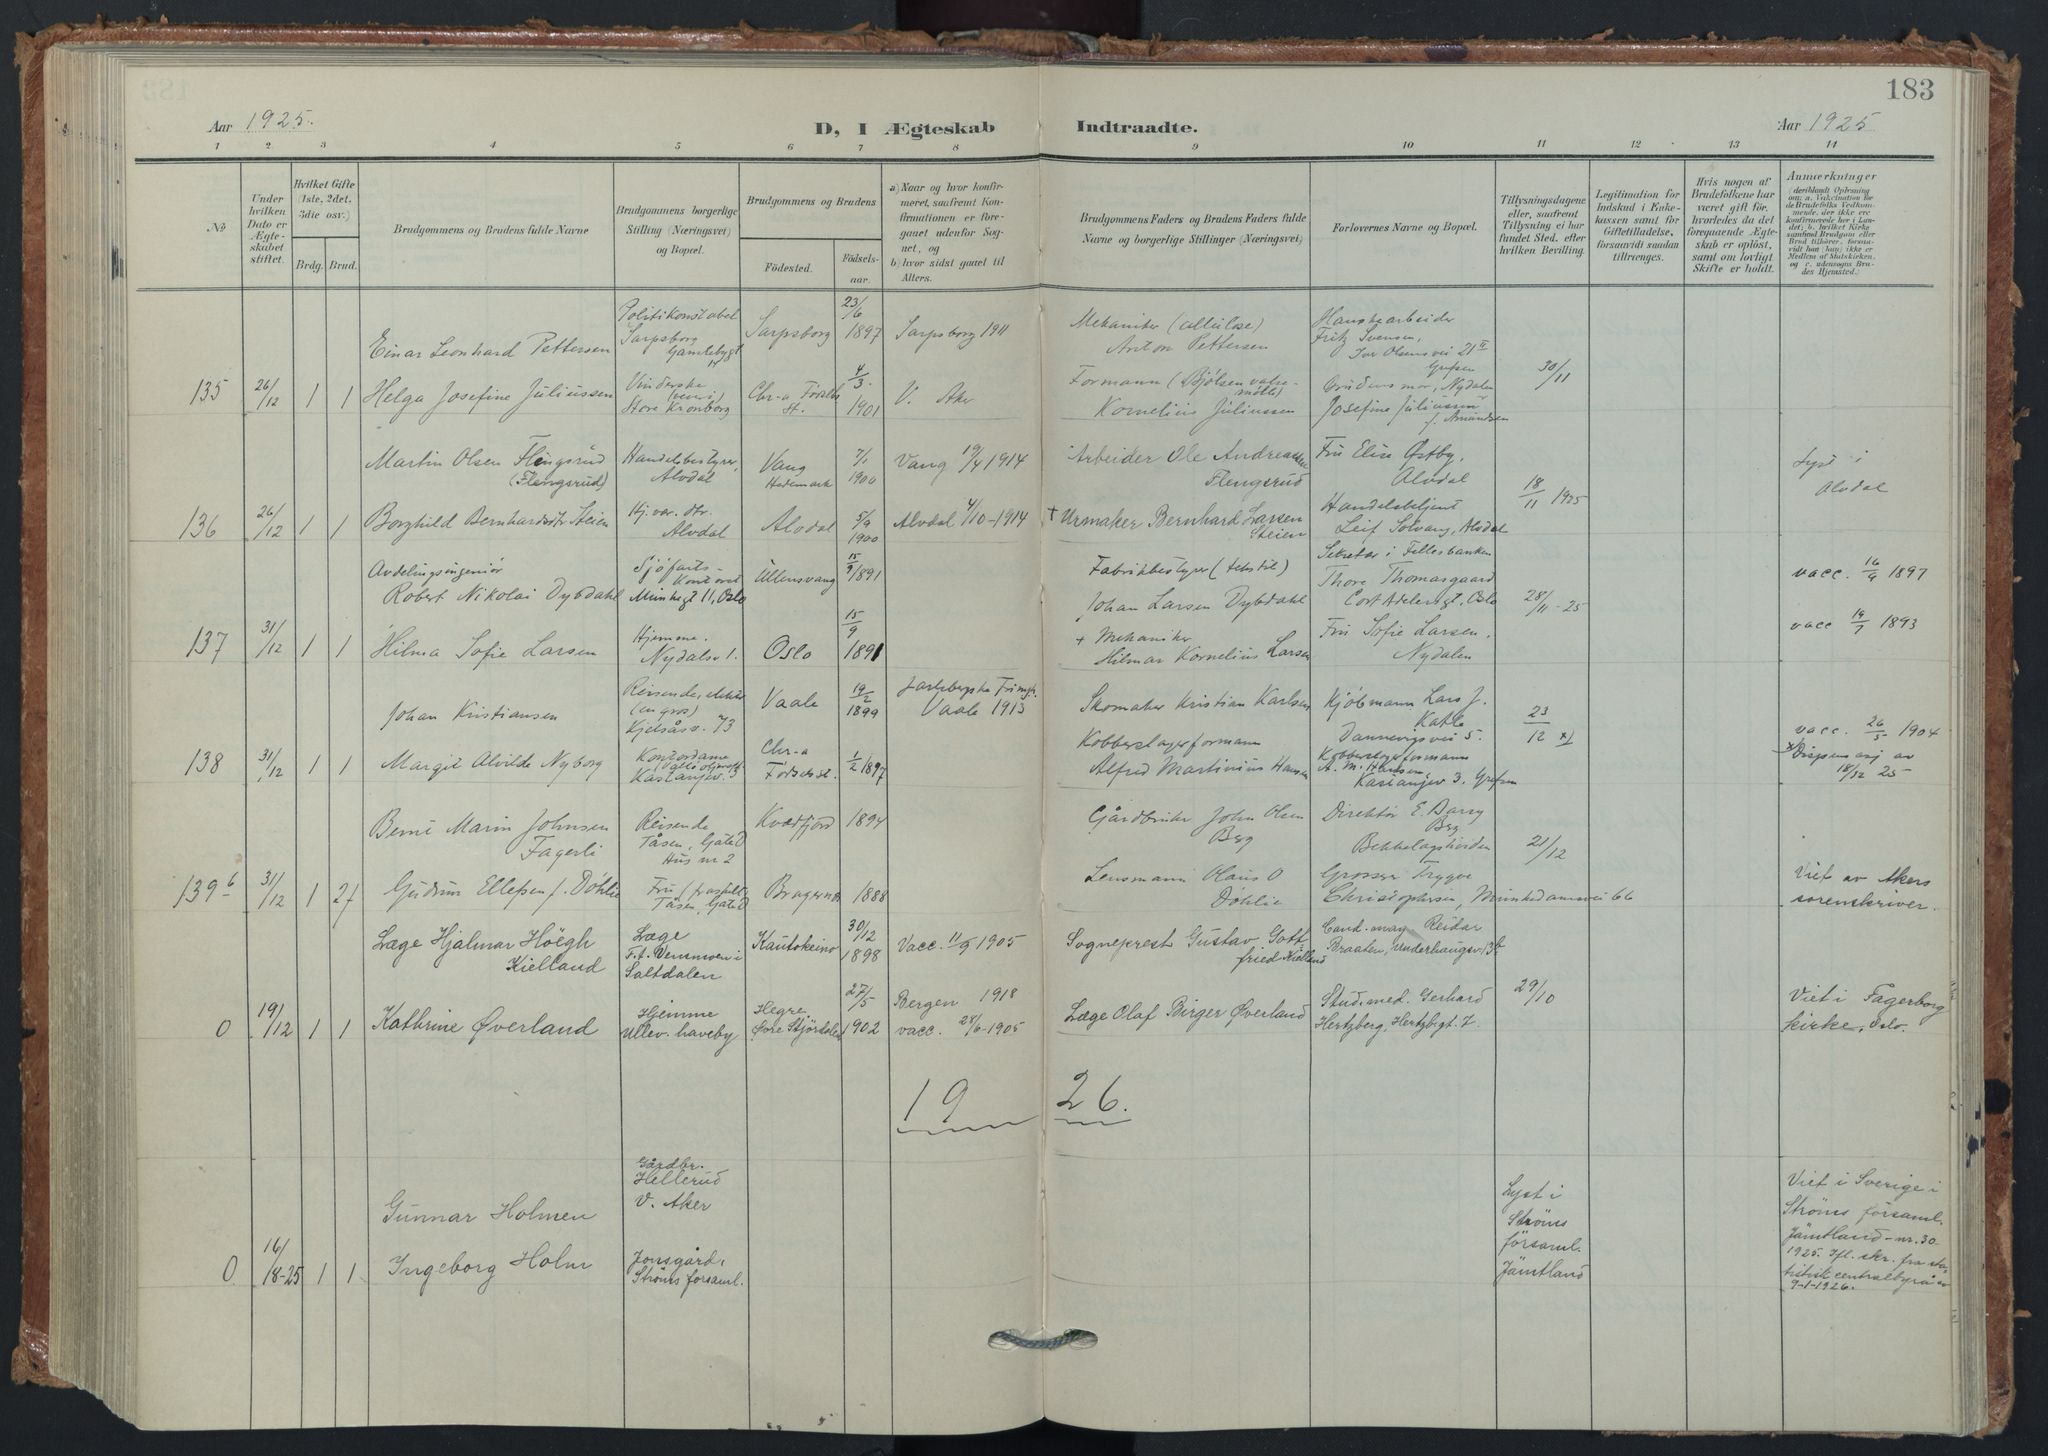 183
Aar 1925.
D, I Ægteskab Indtraadte.
Aar 1925
1 2 3 4 5 6 7 8 9 10 11 12 13 14
№
Under hvilken Dato er Ægteskabet stiftet.
Hvilket Gifte (1ste, 2det, 3die osv.)
Brdg. Brud.
Brudgommens og Brudens fulde Navne
Brudgommens borgerlige Stilling (Næringsvei) og Bopæl.
Brudgommens og Brudens
Fødested.
Fødselsaar.
a) Naar og hvor konfirmeret, saafremt Konfirmationen er foregaaet udenfor Sognet, og
b) hvor sidst gaaet til Alters.
Brudgommens Faders og Brudens Faders fulde Navne og borgerlige Stillinger (Næringsvei)
Forlovernes Navne og Bopæl.
Tillysningsdagene eller, saafremt Tillysning ei har fundet Sted, efter hvilken Bevilling.
Legitimation for Indskud i Enkekassen samt for Giftetilladelse, forsaavidt saadan tiltrænges.
Hvis nogen af Brudefolkene har været gift før, hvorledes da det foregaaende Ægteskab er opløst, samt om lovligt Skifte er holdt.
Anmærkninger
Einar Leonhard Pettersen
Politikonstabel Sarpsborg
Sarpsborg
23/6 1897
Sarpsborg 1911
Mekaniker
Anton Pettersen
Hanskearbeider Fritz Svensen, Iver Olsensvei 21 II
135 26/12 1 1 Helga Josefine Juliussen
Store Kronborg
4/3 1901
V. Aker
Formann (Bjølsen valsemølle)
Kornelius Juliussen
Brudens mor, Nydalen
Josefine Juliussen f. Amundsen
30/11
Martin Olsen Flengsrud (Flengsrud)
Handelsbestyrer, Alvdal
Vang Hedemark
7/1 1900
Vang 19/4 1914
Arbeider Ole Andreassen Flengsrud
Fru Elise Østby, Alvdal
Lyst i Alvdal
136 26/12 1 1 Borghild Bernhardsdtr Steien
Hj.vær. dtr. Alvdal
Alvdal
5/9 1900
Alvdal 4/10-1914
+ Urmaker Bernhard Larsen Steien
Handelsbetjent Leif Solvang, Alvdal
18/11 1925
Avdelingsingeniør
Robert Nikolai Dybdahl
Sjøfartskontoret Munkegt 11, Oslo
Ullensvang
15/9 1891
Fabrikbestyrer (tekstil)
Johan Larsen Dybdahl
Sekretær i Fellesbanken
Thore Thomasgaard
Cort Adelersgt, Oslo
28/11-25
vacc. 16/9 1897
137 31/12 1 1 Hilma Sofie Larsen
Hjemme. Nydalsv 1.
Oslo
15/9 1891
+ Mekaniker
Hilmar Kornelius Larsen
Fru Sofie Larsen, Nydalen
vacc 19/7 1893
Johan Kristiansen
(en gros) Kjelsåsv. 73
Vaale
19/2 1899
Jarlsbergske Frimgh. Vaale 1913
Skomaker Kristian Karlsen
Kjøbmann Lars J.
Dannevigsvei 5.
23/12
vacc. 26/5 1904
138 31/12 1 1 Margit Alvilde Nyborg
Kontordame
Kastanjev. 3
Chr-a Fødselsst.
1/2 1897
Kobberslagerformann
Alfred Martinius Hansen
Kobberslagerformann A. M. Hansen, Kastanjev 3. Grefsen
Dispensasj av 18/12 25
Bernt Marin Johnsen Fagerli
Reisende Tåsen, Gate D Hus nr 2
Kvædfjord
1894
Gårdbruker John Olsen Berg
Direktør E. Darry Berg
Bekkelagshøiden
21/12
139 b 31/12 1 27 Gudrun Ellefsen f. Døhlie
Fru (fraskilt) Tåsen, Gate D
Bragernes
1888
Lensmann Olaus O Døhlie
Grosser Trygve Christophersen, Munkedamsvei 66
Viet av Akers sorenskriver.
Læge Hjalmar Höegh Kielland
Læge F.t. Vensmoen i Saltdalen
Kautokeino
30/12 1898
Vacc. 11/9 1905
Sogneprest Gustav Gottfried Kielland
Cand. mag Reidar Braaten, Underhaugsv. 13b
0 19/12 1 1 Kathrine Øverland
Hjemme Ullev. haveby
Hegre, Øvre Stjørdalen
27/5 1902
Bergen 1918
vacc. 28/6-1905
Læge Olaf Birger Øverland
Stud. med. Gerhard Hertzberg, Hertzbgt. 7.
29/10
Viet i Fagerborg kirke, Oslo.
19 26.
Gunnar Holmen
Gårdbr. Hellerud V. Aker
0 16/18-25 1 1 Ingeborg Holm
Jonsgård, Ströms forsaml.
Lyst i Ströms församl. Jämtland
Viet i Sverige i Ströms församl. Jämtland - nr. 30 1925. Ifl. skr. fra statistisk centralbyrå av 9-1-1926.